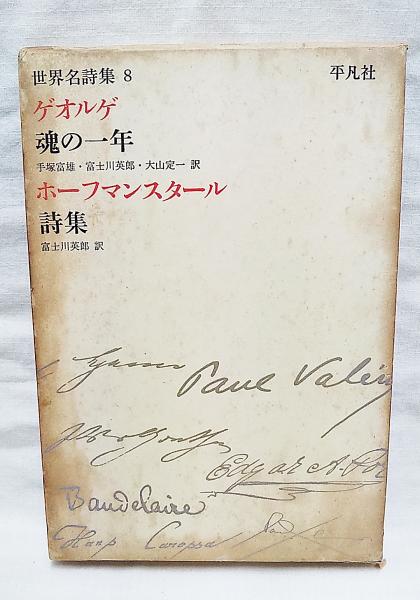 世界名詩集 8
平凡社
ゲオルゲ
魂の一年
手塚富雄・富士川英郎・大山定一 訳
ホーフマンスタール
詩集
富士川英郎 訳
Paul Valéry
Edgar A. Poe
Baudelaire
Hans Carossa